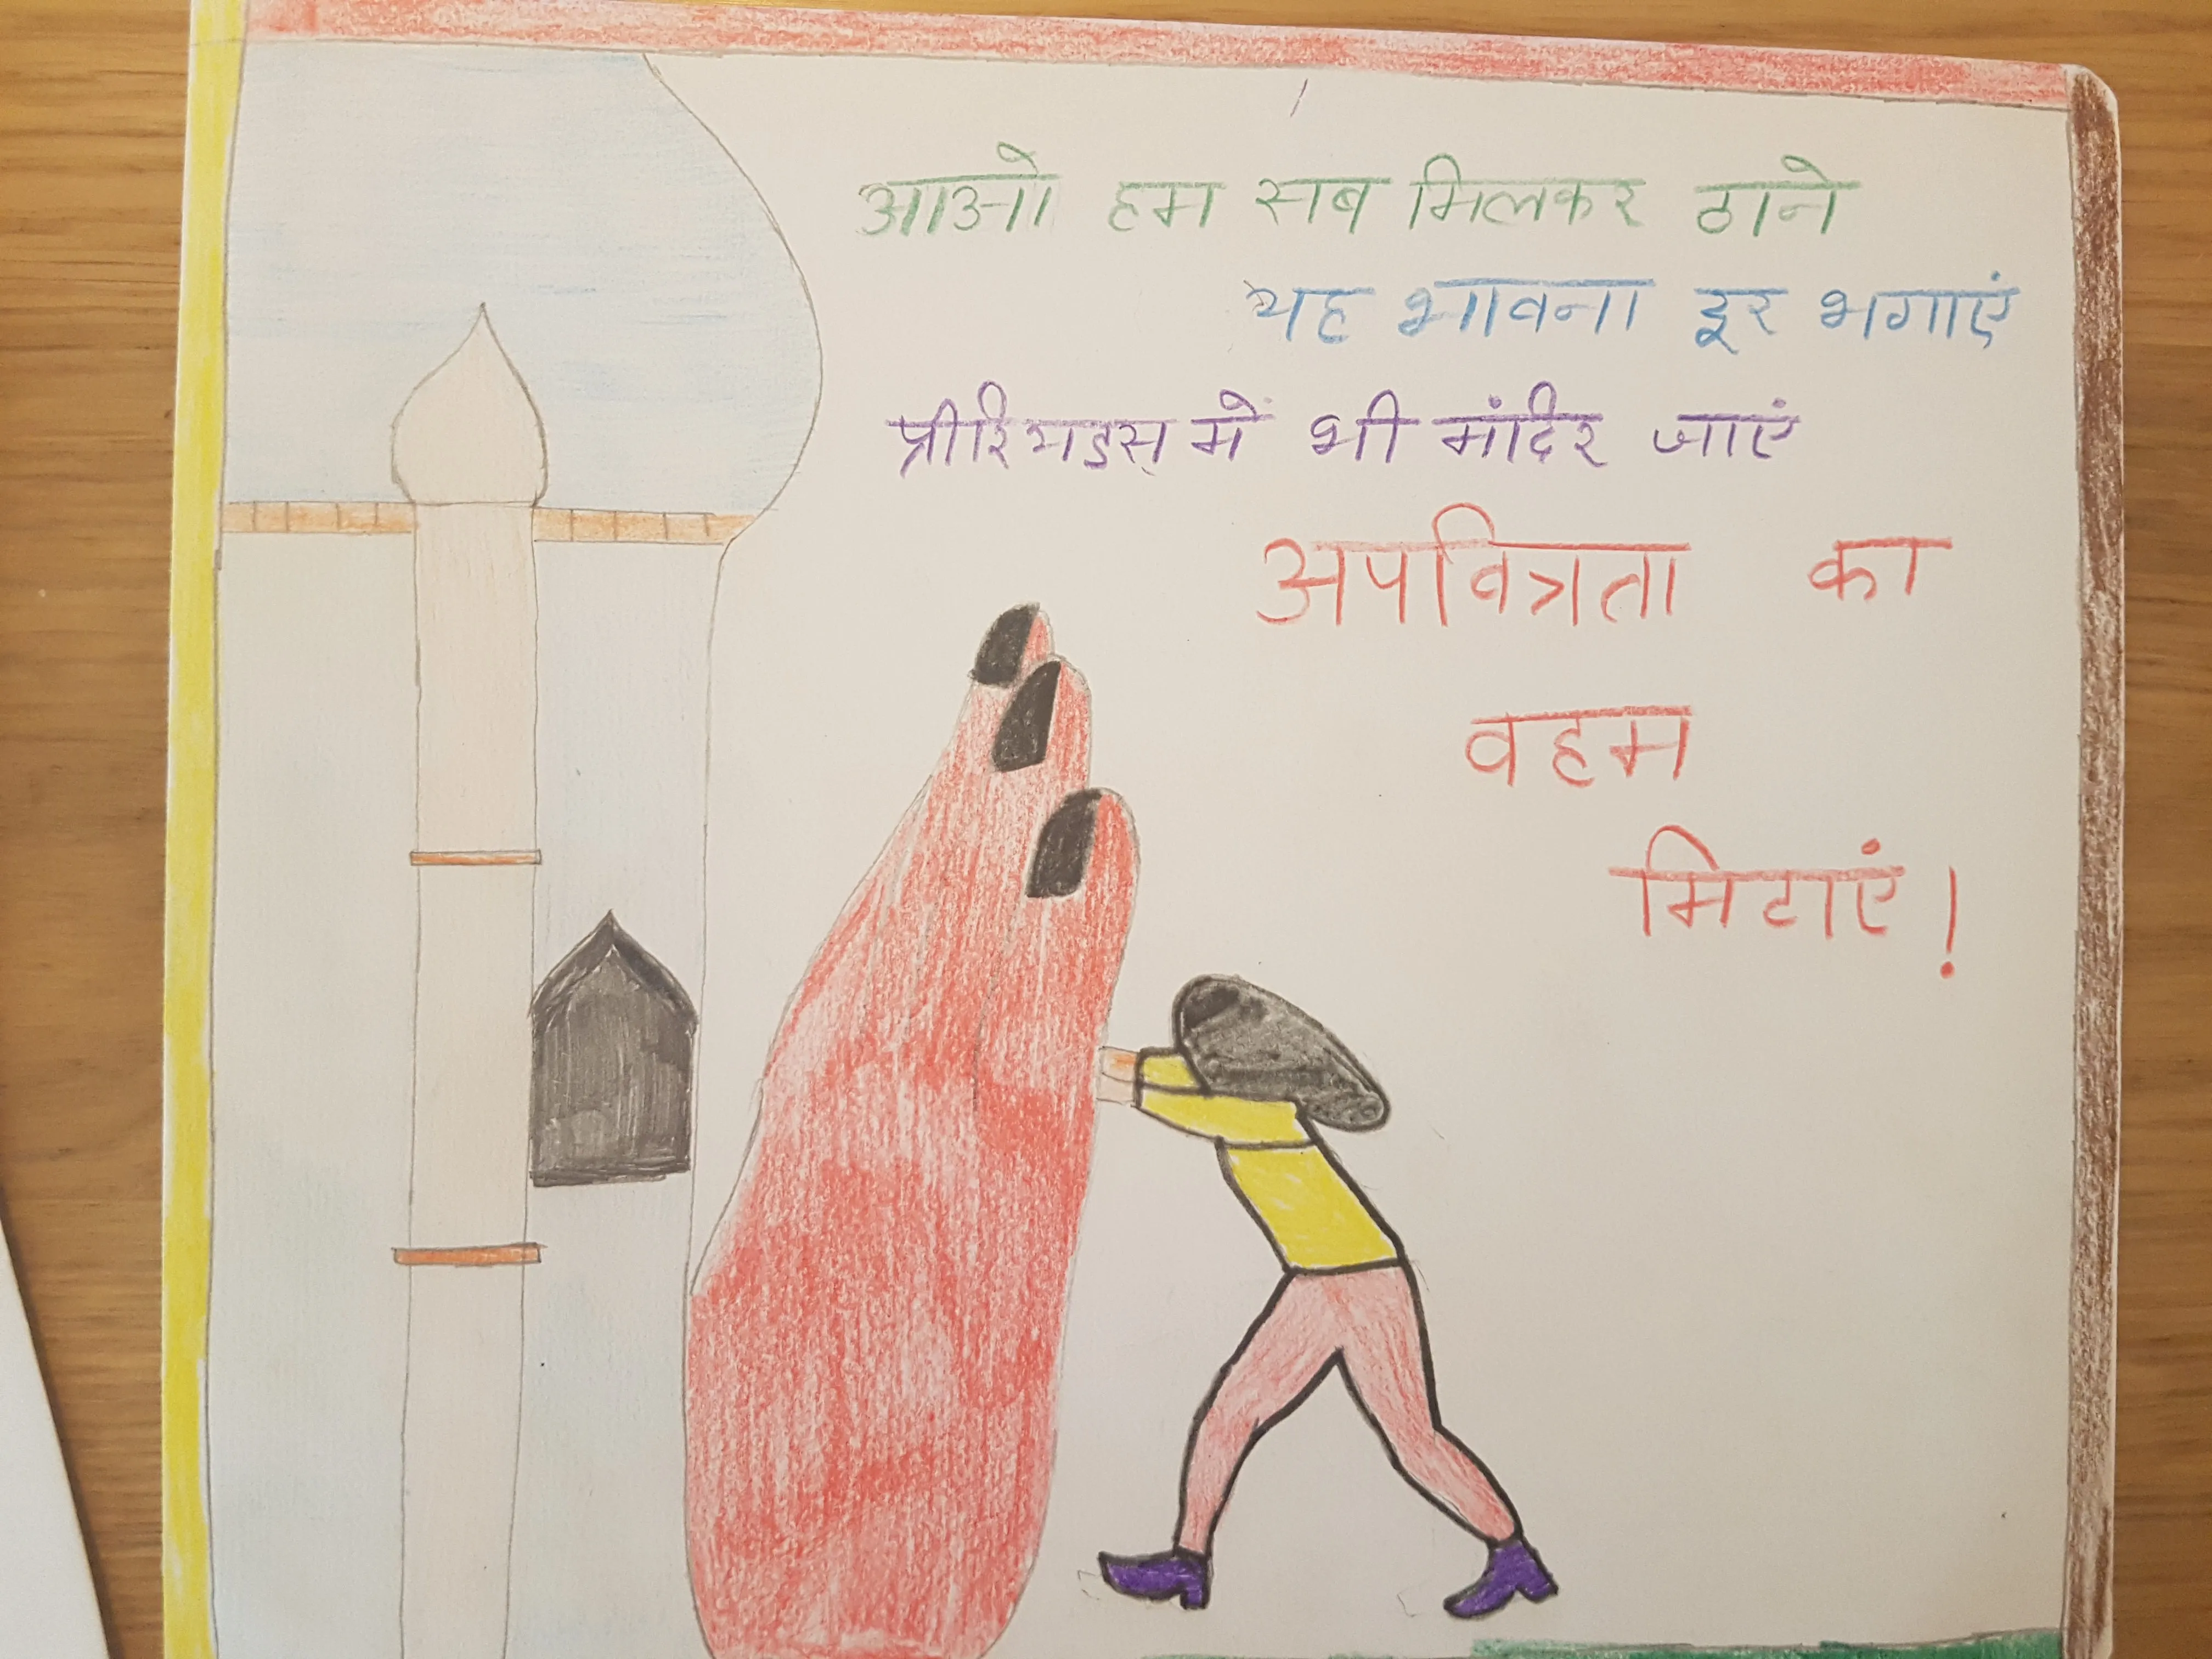 आओ हम सब मिलकर ठाने
यह भावना दूर भगाएं
प्रीरियडस् में भी मंदिर जाएं
अपवित्रता का
वहम
मिटाएं!